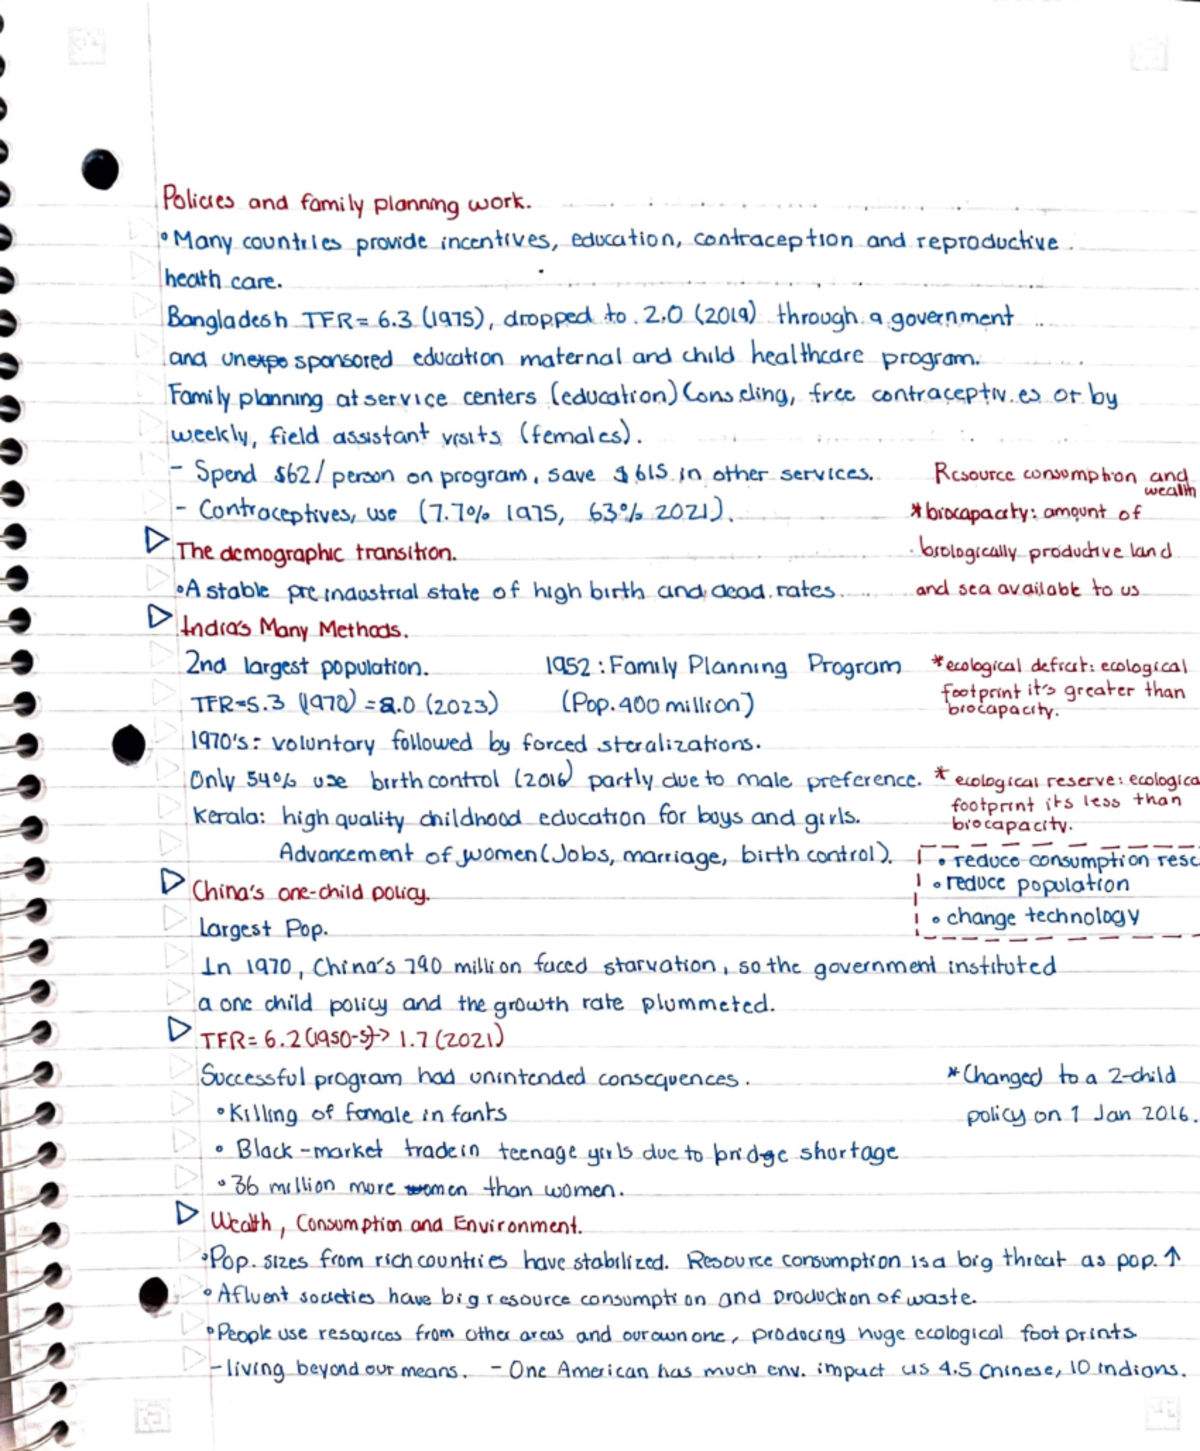 Policies and family planning work.
• Many countries provide incentives, education, contraception and reproductive
heath care.
Bangladesh TFR= 6.3 (1975), dropped to 2.0 (2019) through a government
and unexpo sponsored education maternal and child healthcare program.
Family planning at service centers (education) Conseling, free contraceptives or by
weekly, field assistant visits (females).
- Spend $62/person on program, save $615 in other services.
- Contraceptives, use (7.7% 1975, 63% 2021).
Resource consumption and
wealth
* biocapacity: amount of
biologically productive land
and sea available to us
The demographic transition.
• A stable preindustrial state of high birth and dead rates.
India's Many Methods.
2nd largest population. 1952: Family Planning Program
TFR=5.3 (1970) = 2.0 (2023) (Pop. 400 million)
* ecological deficit: ecological
footprint it's greater than
biocapacity.
1970's: voluntary followed by forced steralizations.
Only 54% use birth control (2016) partly due to male preference.
Kerala: high quality childhood education for boys and girls.
Advancement of women (Jobs, marriage, birth control).
* ecological reserve: ecologica
footprint its less than
biocapacity.
• reduce consumption reso
• reduce population
• change technology
China's one-child policy.
Largest Pop.
In 1970, China's 790 million faced starvation, so the government instituted
a one child policy and the growth rate plummeted.
TFR= 6.2 (1950-5)-> 1.7 (2021)
Successful program had unintended consequences.
* Changed to a 2-child
policy on 1 Jan 2016.
• Killing of female infants
• Black-market trade in teenage girls due to bridge shortage
• 36 million more women than women.
Wealth, Consumption and Environment.
• Pop. sizes from rich countries have stabilized. Resource consumption is a big threat as pop. ↑
• Afluent societies have big resource consumption and production of waste.
• People use resources from other areas and our own one, producing huge ecological footprints
- living beyond our means. - One American has much env. impact as 4.5 Chinese, 10 Indians.